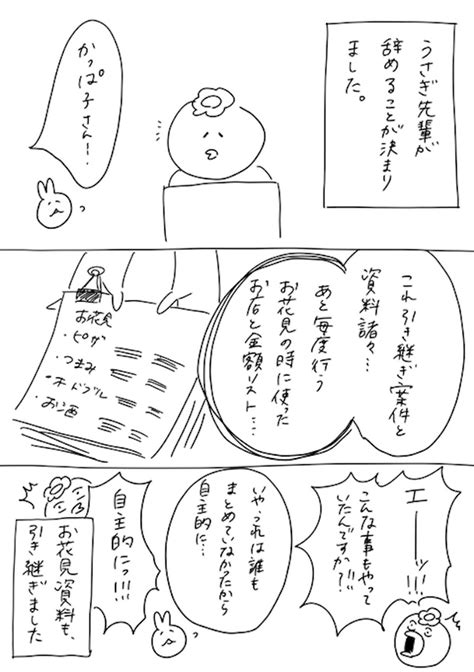 うさぎ先輩が
辞めることが決まり
ました。
かっぱ子さん!
これ引き継ぎ案件と
資料諸々…
あと毎度行う
お花見の時に使った
お店と金額リスト…
お花見
・ピザ
・つまみ
・オードブル
・お酒
エーッ!!!
こんな事もやって
いたんですか?!!
いや、これは誰も
まとめていなかったから
自主的に…
自主的にっ!!!
お花見資料も、
引き継ぎました